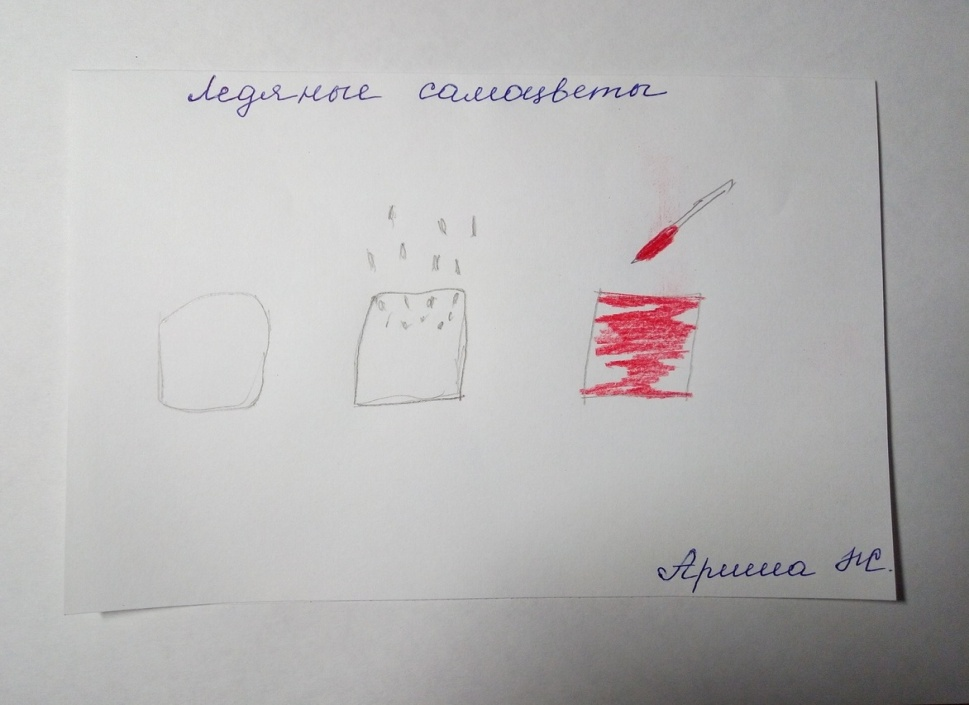 Ледяные самоцветы
Арина Ж.